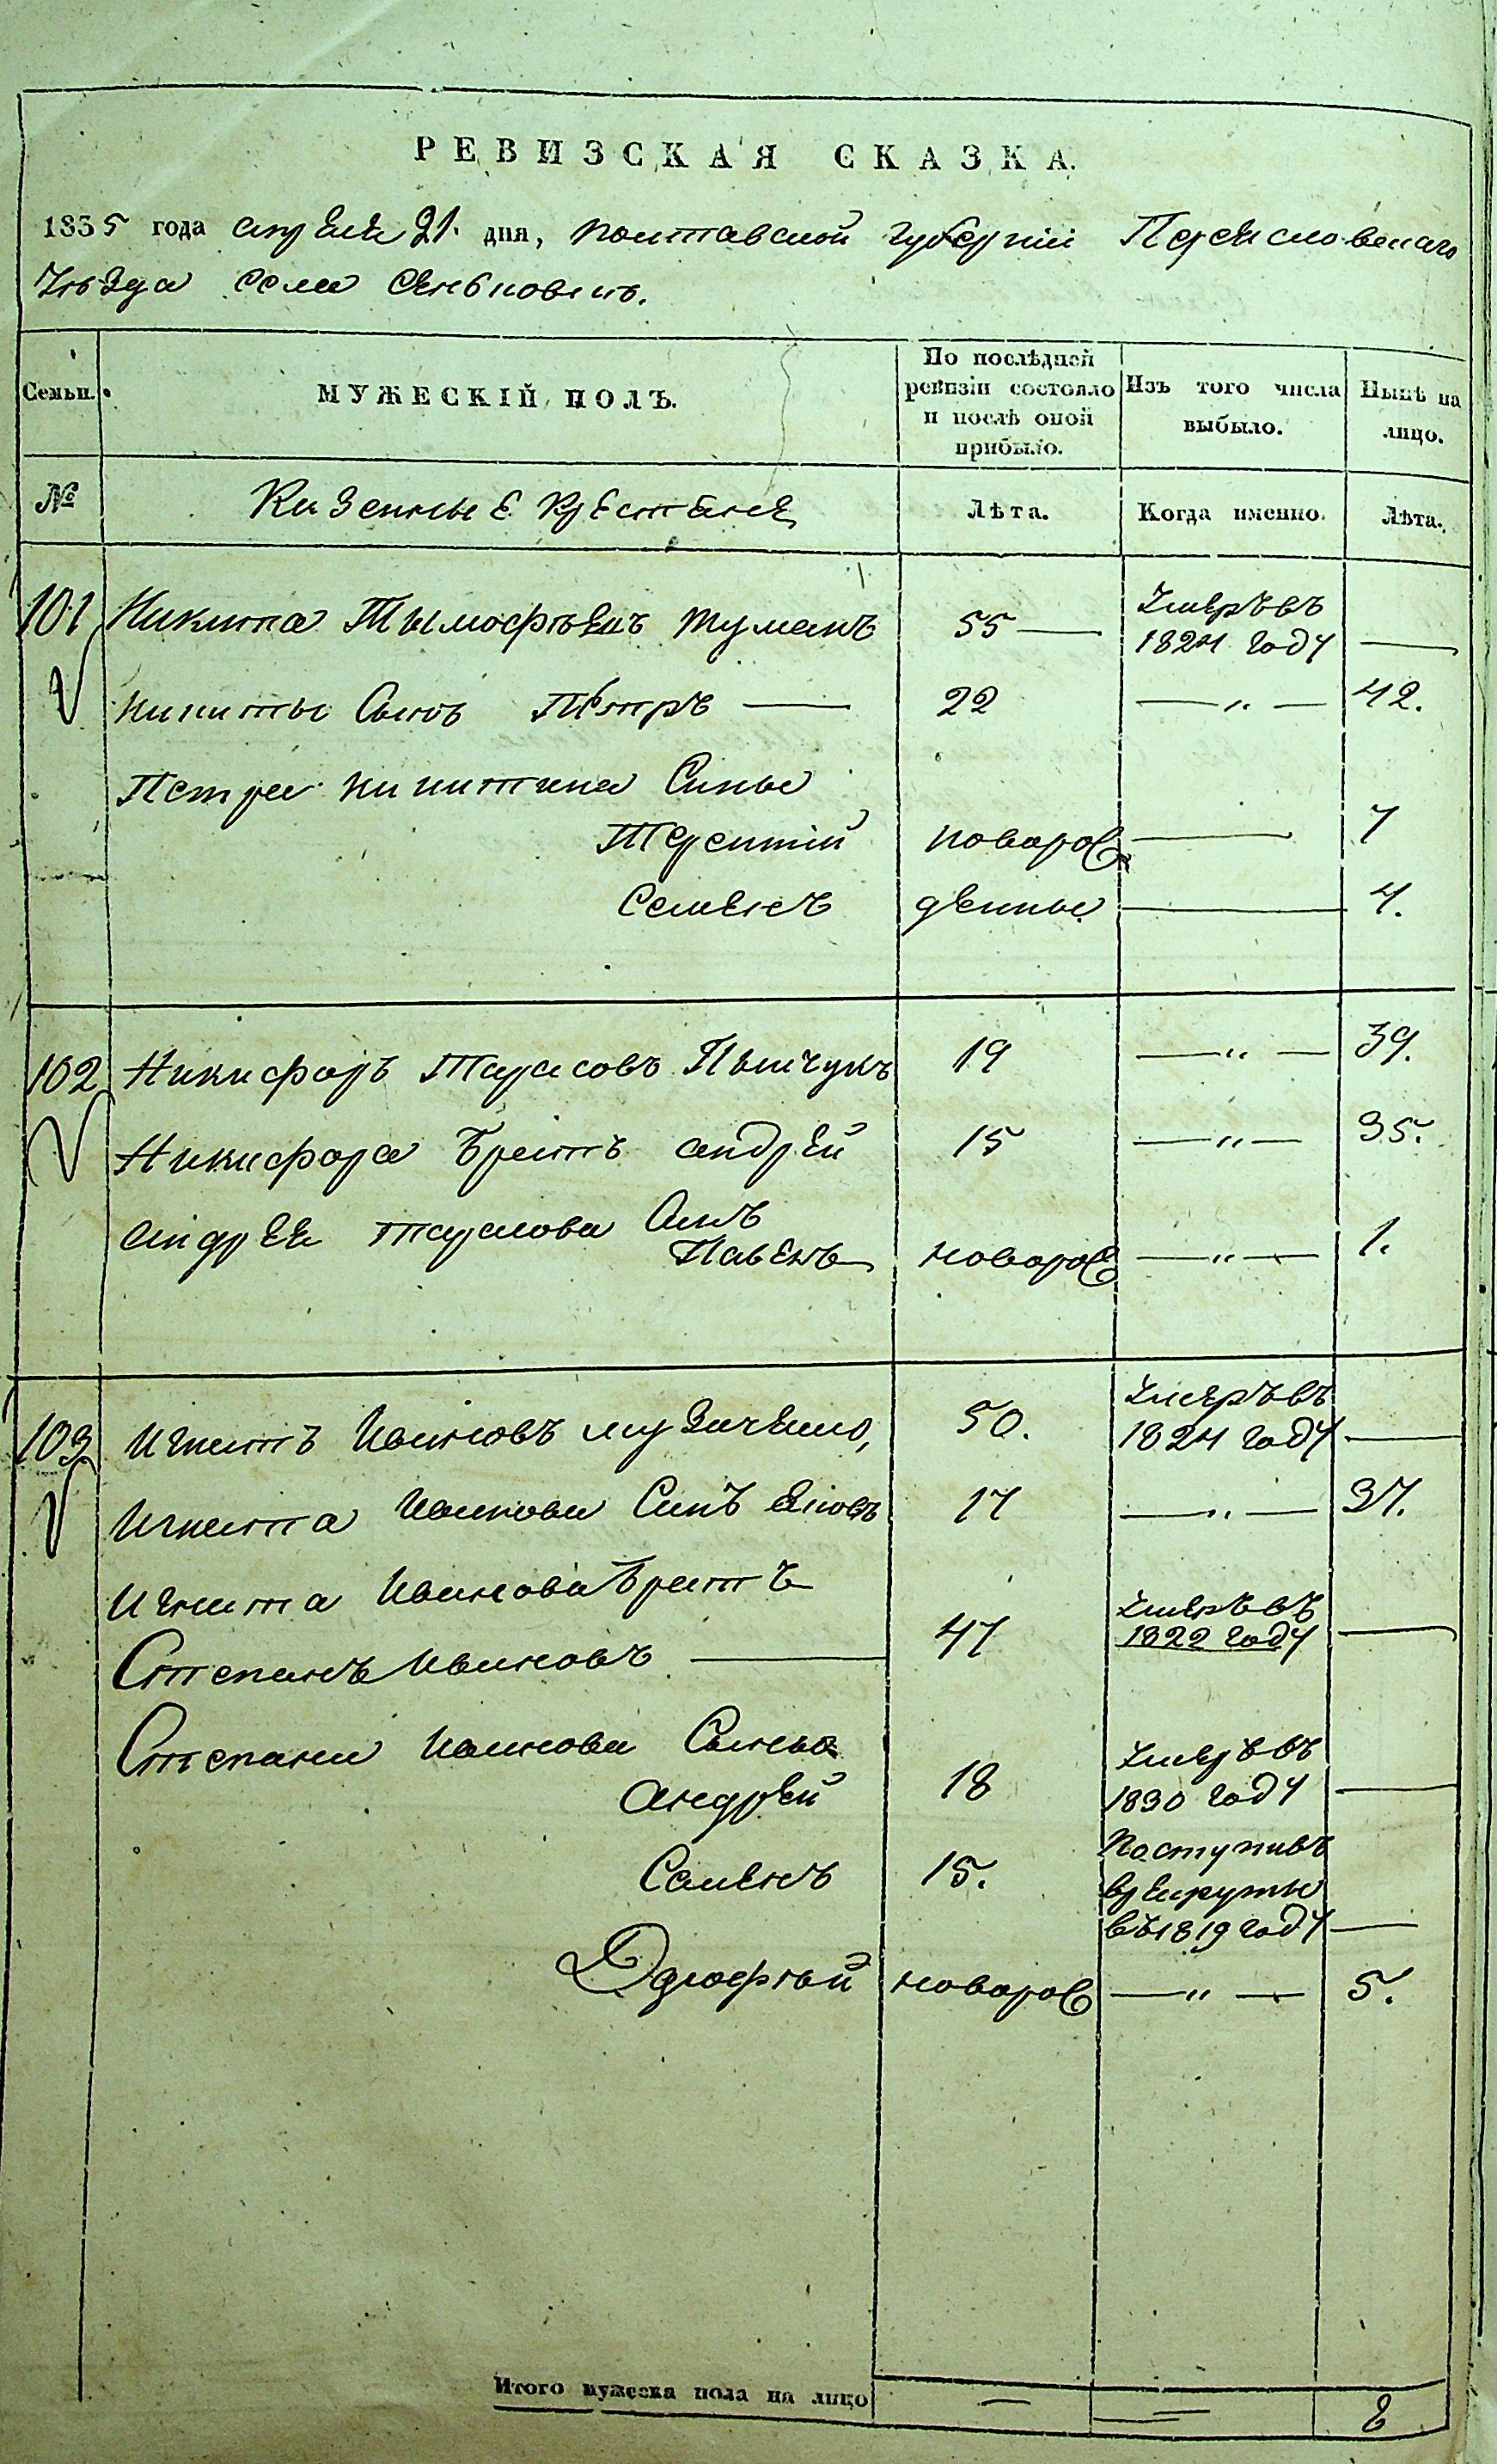 РЕВИЗСКАЯ СКАЗКА.
1835 года апреля 21. дня, полтавской губерніи Переясловскаго
уѣзда села Сеньковецъ.
Семьи.
МУЖЕСКІЙ ПОЛЪ.
По послѣдней
ревизіи состояло
и послѣ оной
прибыло.
Изъ того числа
выбыло.
Нынѣ на
лицо.
№
Казенные крестяне
Лѣта.
Когда именно.
Лѣта.
101 Никита Тымофѣевъ Туманъ 55 — умеръ въ
1824 году —
Никиты Сынъ Петръ — 22 — „ — 42.
Петра Никитина Сины
Терентій новорож — 7
Семенъ денные — 4.
102 Никифоръ Тарасовъ 19 — „ — 39.
Никифора братъ андрей 15 — „ — 35.
андрея тарасова Синъ
новорож — „ — 1.
103 Игнатъ Ивановъ музиченко, 50. умеръ въ
1824 году —
Игната Иванова Синъ яковъ 17 — „ — 37.
Игната Иванова братъ
Степанъ Ивановъ — 47 умеръ въ
1822 году —
Степана Иванова Сынья
андрей 18 умеръ въ
1830 году —
Семенъ 15. поступивъ
врекруты
въ 1819 году —
новорож — „ — 5.
Итого мужеска пола на лицо — — 8